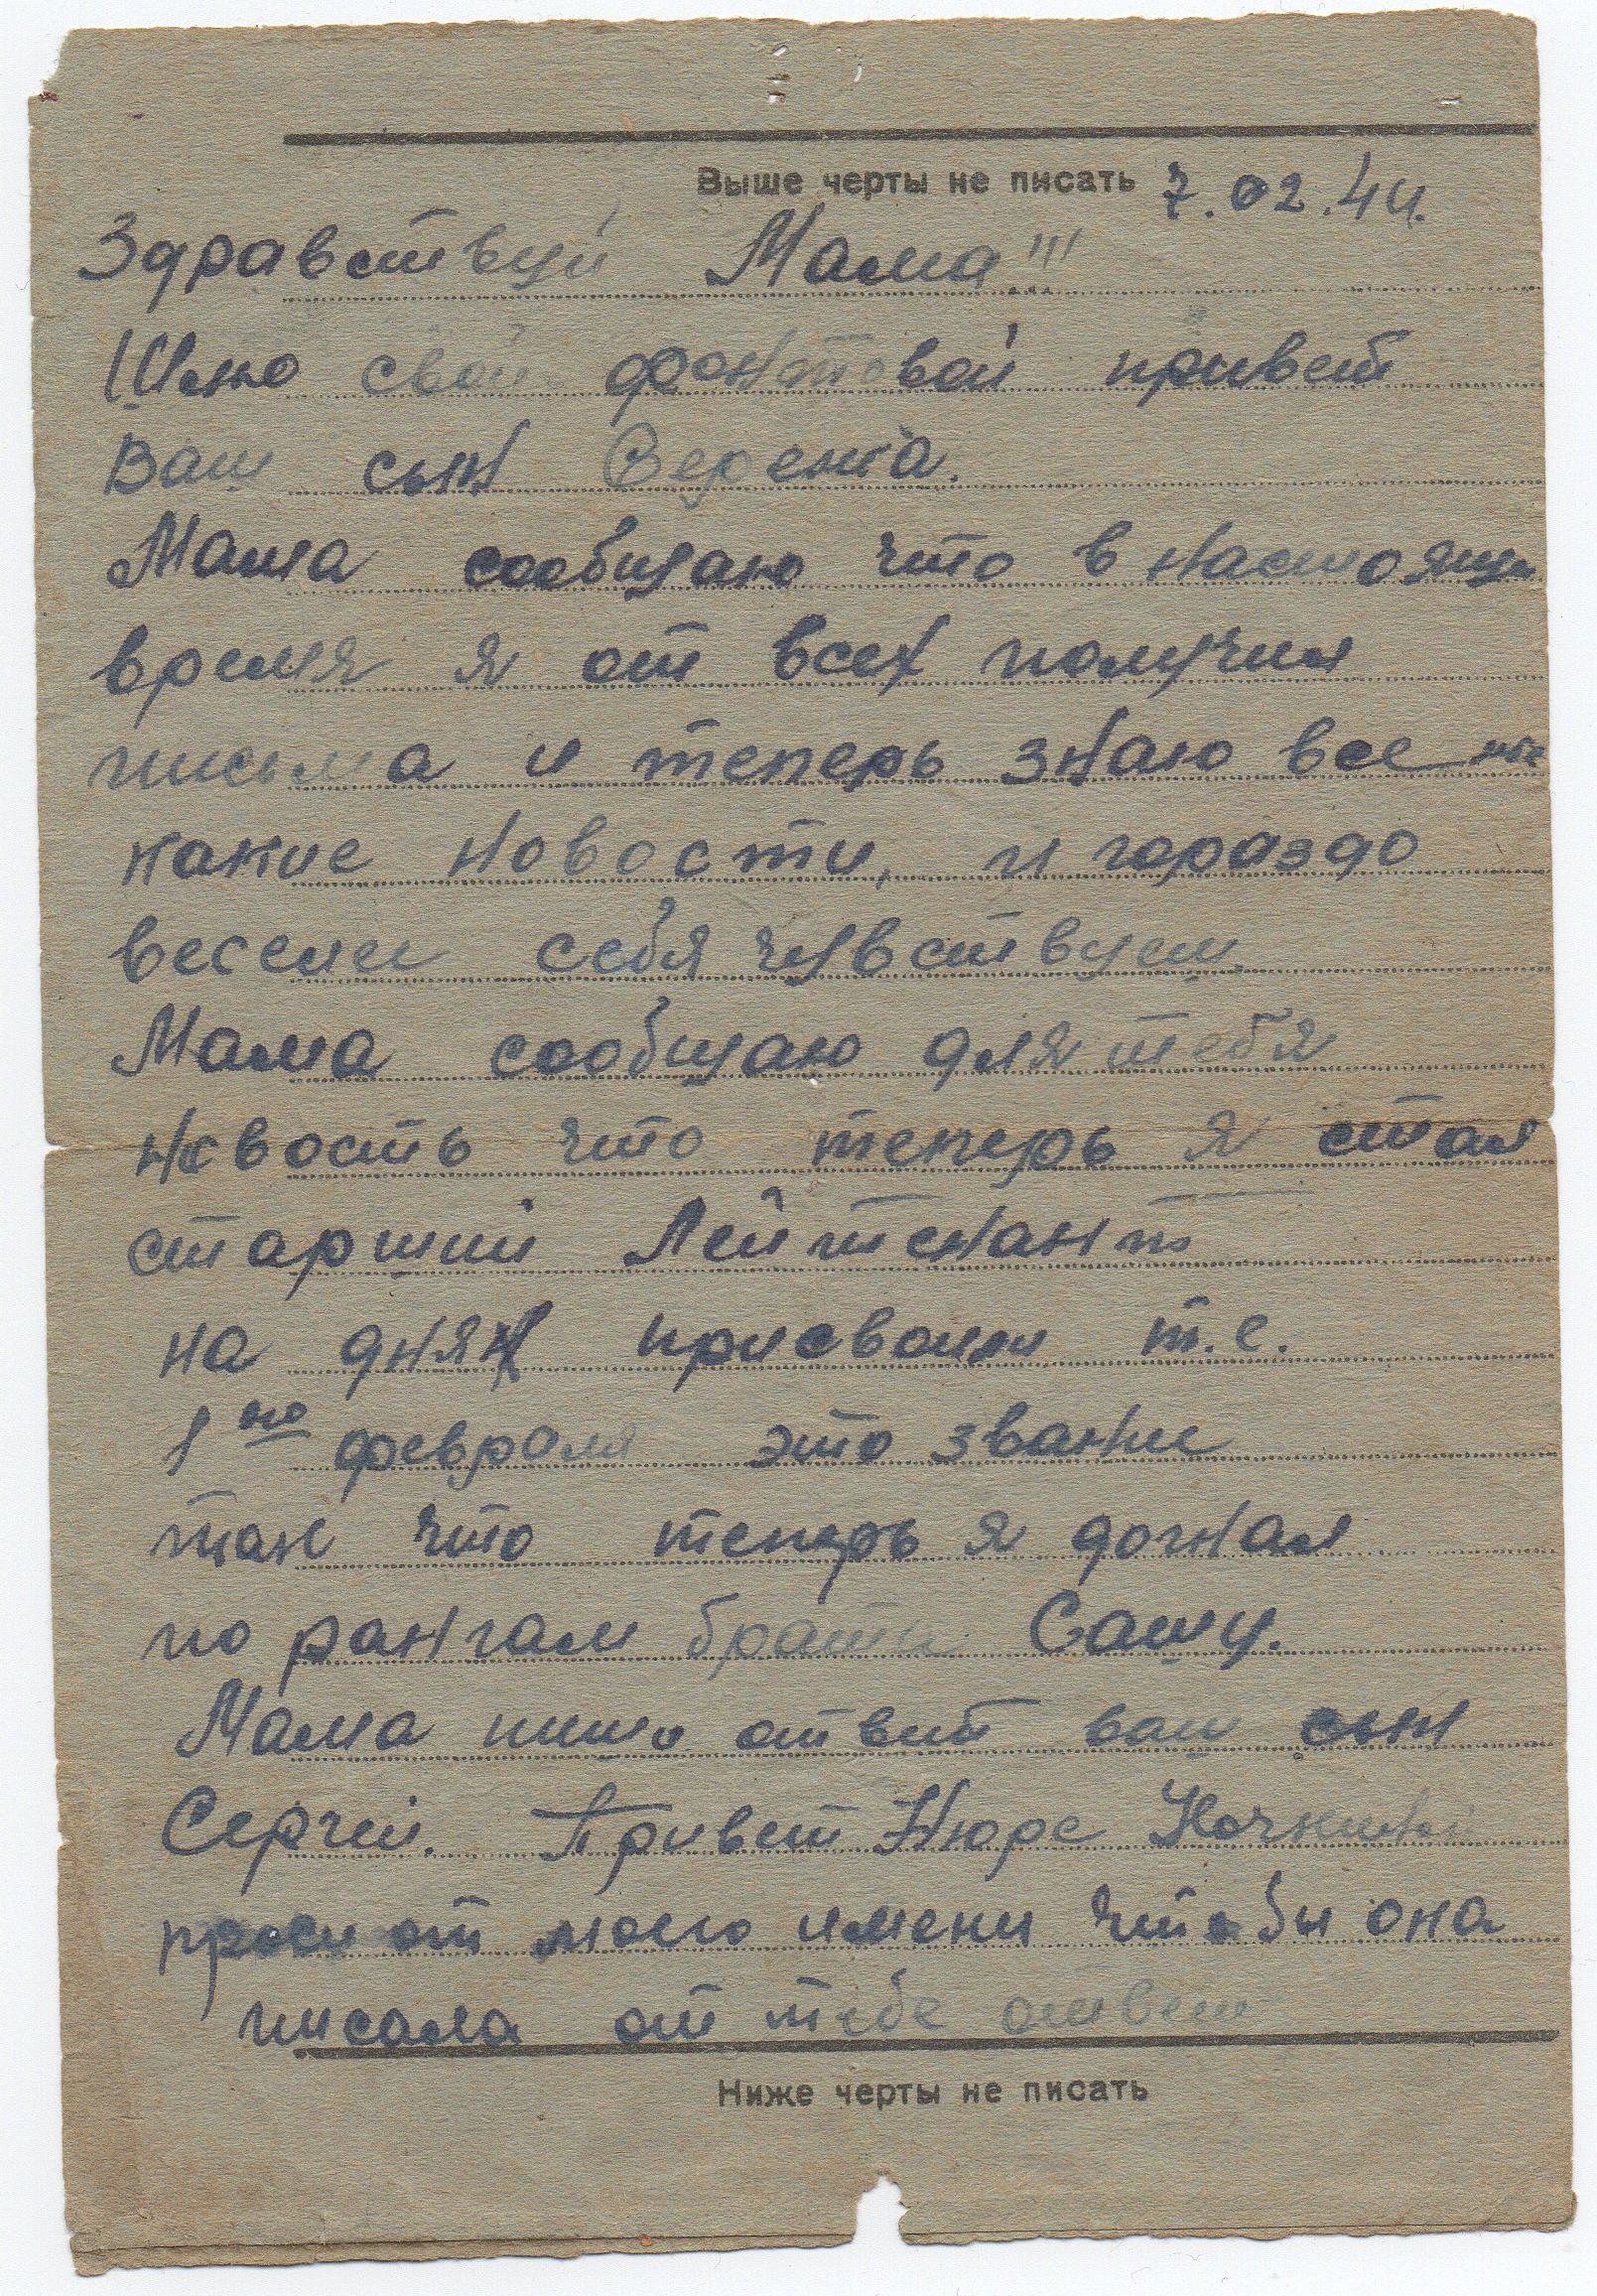 Выше черты не писать 7.02.44.
Здравствуй Мама!!!
Шлю свой фонтовой привет
Ваш сын Серенка.
Мама сообщаю что в настоящи
время я от всех получил
письма и теперь знаю все
какие новости, и гораздо
веселее себя чувствуем.
Мама сообщаю для тебя
новость что теперь я стал
старший Лейтенант
на днях присвоили т.е.
1но февраля это звание
так что теперь я догнал
по рангам брата Сашу.
Мама пиши ответ ваш сын
Сергей. Привет Нюре Кочкиной
проси от моего имени чтобы она
писала от тебе ответ
Ниже черты не писать